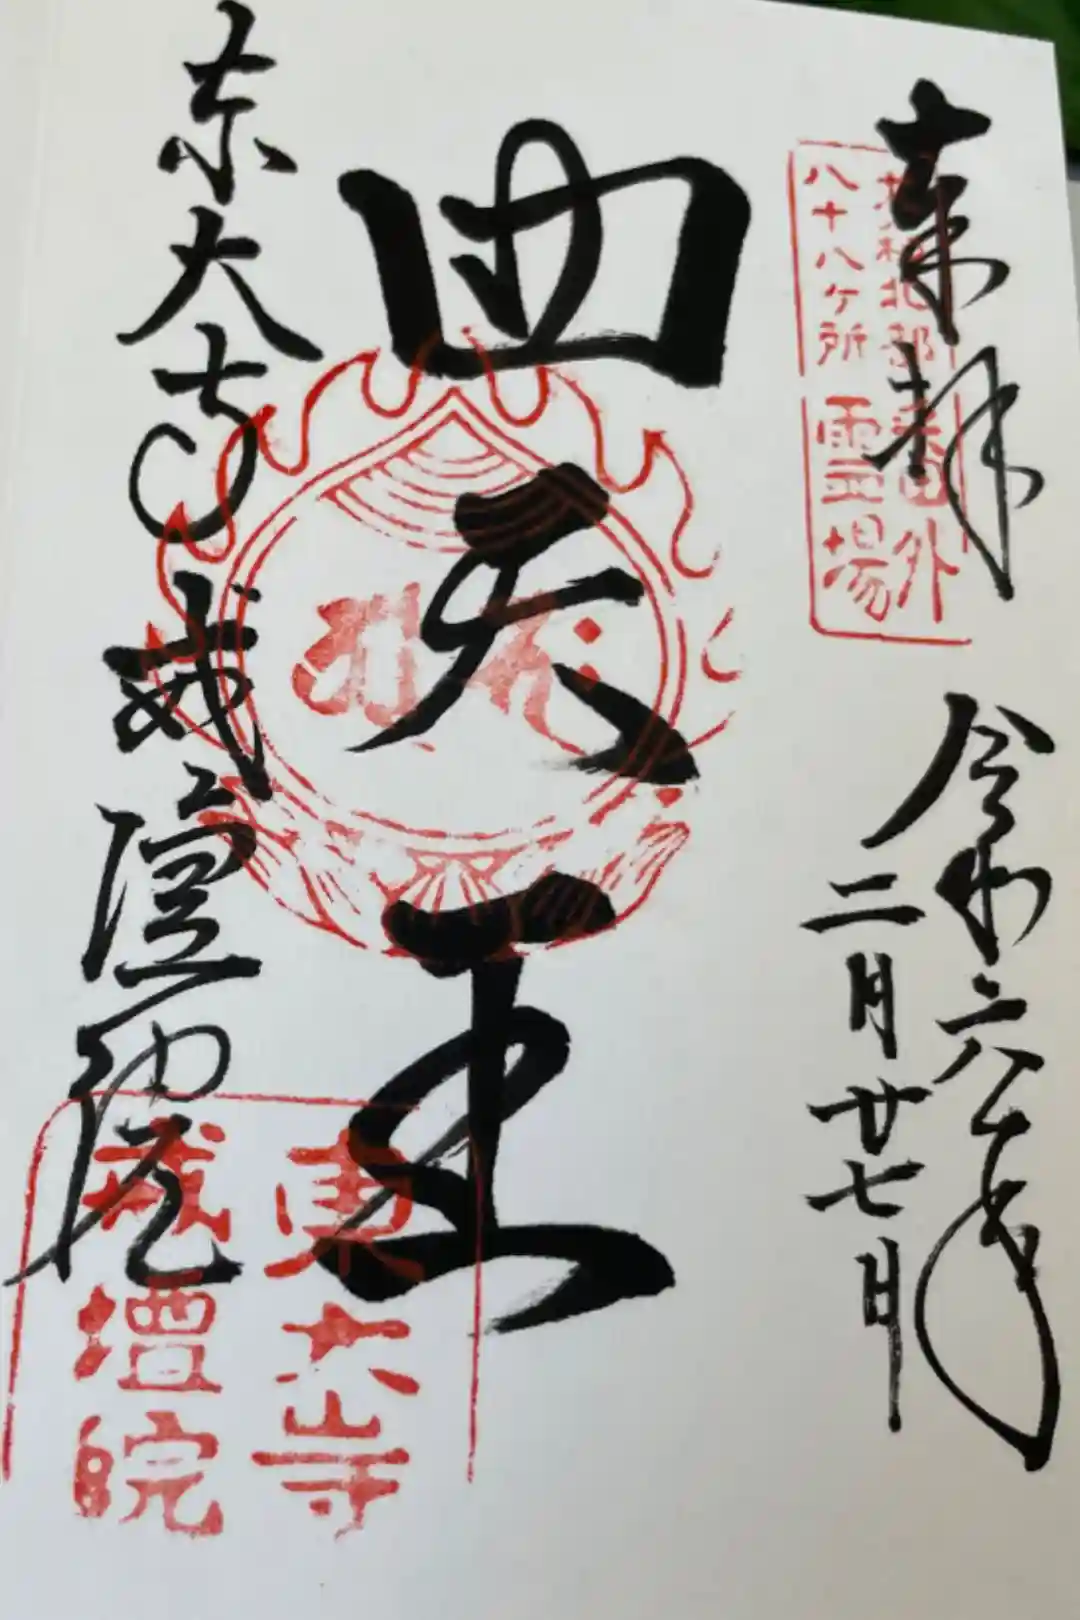 奉拝
大和北部番外
八十八ヶ所霊場
令和六年
二月廿七日
四天王
東大寺戒壇院
東大寺
戒壇院